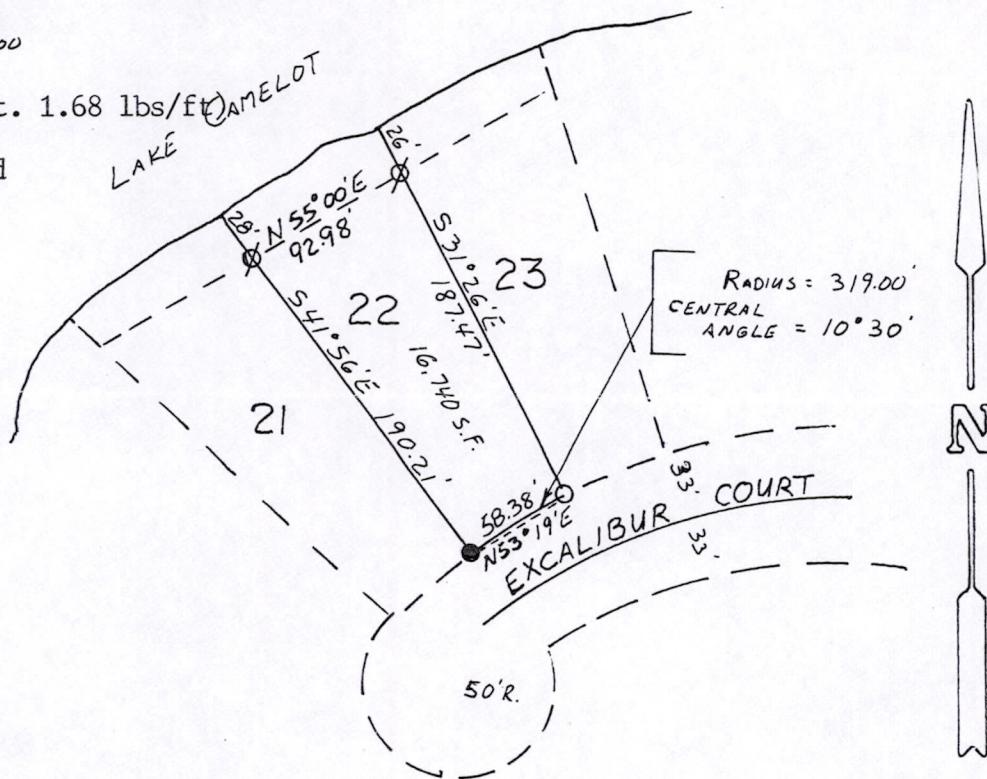 t. 1.68 lbs/ft)
LAKE CAMELOT
28'
N 55°00'E
92.98'
26'
S 31°26'E
187.47'
23
22
16.740 S.F.
S 41°56'E 190.21'
21
RADIUS = 319.00'
CENTRAL
ANGLE = 10°30'
58.38'
N 53°19'E
33'
EXCALIBUR COURT
33'
50'R.
N